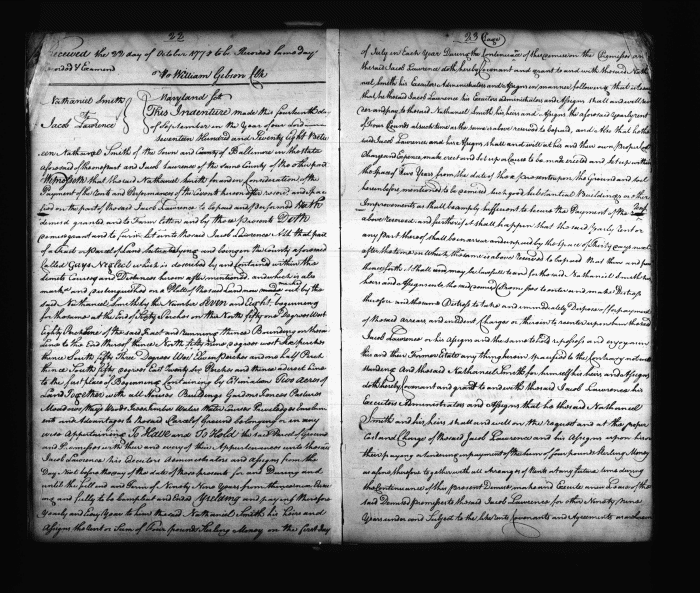 22
received the 22 day of October 1778 to be Recorded same day
orded & Examined
Wm William Gibson Clk
Nathaniel Smith
To
Jacob Lawrence
Maryland Sct
This Indenture made this fourteenth day
of September in the Year of our Lord
Seventeen Hundred and Seventy Eight Betw
een Nathaniel Smith of the Town and County of Baltimore in the State
aforesaid of the one part and Jacob Lawrence of the same County of the other part
Witnesseth that the said Nathaniel Smith for and in Consideration of the
Payment of the Rents and Performances of the Covenants herein after and
on the part of the said Jacob Lawrence to be paid and Performed Hath
demised granted and to Farm letten and by these presents Doth
demise grant and to Farm let unto the said Jacob Lawrence All that part
of a Tract or parcel of Land Situate lying and being in the County aforesaid
Called Gays Neglect which is described by and Contained within the
limits Courses and Distances herein after mentioned and which is also
marked and distinguished on a Platt of the said Land now made out by the
said Nathaniel Smith by the Number Seven and Eight, beginning
for the same at the End of Fifty Perches on the North fifty one Degrees West
Eighty Perch line of the said Tract and running thence Bounding on the said
Line to the End thereof thence North fifty nine degrees west six perches
thence South fifty Three Degrees West Eleven perches and one half Perch
thence South fifty degrees East Twenty six Perches and thence a direct line
to the first place of Beginning Containing by Estimation Two Acres of
Land Together with all Houses Buildings Gardens Fences Pastures
Meadows Ways Woods Trees Timber Waters Water Courses Priviledges Emolum
ents and Advantages to the said Parcel of Ground belonging or in any
wise Appertaining To Have and To Hold the said Parcel of Ground
and Premises with their and every of their Appurtenances unto the said
Jacob Lawrence his Executors Administrators and Assigns from the
Day Next before the day of the date of these presents for and During and
until the full end and Term of Ninety Nine Years from thence next Ensu
ing and fully to be Compleat and Ended Yielding and paying therefore
Yearly and Every Year to him the said Nathaniel Smith his Heirs and
Assigns the Rent or Sum of Four pounds Sterling Money on the first day
23 Page
of July in each Year During the Continuance of this demise on the Premises and
the said Jacob Lawrence doth hereby Covenant and grant to and with the said Natha
niel Smith his Executors Administrators and Assigns in manner following that is to say
that he the said Jacob Lawrence his Executors Administrators and Assigns shall and will
and pay to the said Nathaniel Smith his heirs and Assigns the aforesaid Yearly rent
of Four Pounds at such time as the same is above reserved to be paid, and Also that he the
said Jacob Lawrence and his Assigns shall and will at his and their own proper
Charge and Expence, make erect and set up or cause to be made erected and set up within
the space of Two Years from the date of these presents upon the Ground and
hereby intended to be granted such good substantial Buildings or other
Improvements as shall be amply sufficient to secure the Payment of the Rent
above reserved and further if it shall happen that the said Yearly Rent or
any part thereof shall be arrear and unpaid by the space of Thirty days next
after the time on which the same is above reserved to be paid that then and from
thenceforth it shall and may be lawful to and for the said Nathaniel Smith his
heirs and Assigns into the said Demised Premises to enter and make Distress
therefor and the said Distress to take and immediately dispose of for payment
of the said arrears and incident Charges or therein to reenter upon
Jacob Lawrence or his Assigns and the same to have repossess and enjoy as in
his and their Former Estate any thing herein specified to the Contrary notwith
standing. And the said Nathaniel Smith for himself his heirs and Assigns
doth hereby Covenant and grant to and with the said Jacob Lawrence his
Executors Administrators and Assigns that he the said Nathaniel
Smith and his heirs shall and will on the request and at the proper
Cost and Charge of the said Jacob Lawrence and his Assigns upon his or
their paying or tendering in payment of the sum of Four pounds Sterling Money
as afore, therefore together with all arrearages of Rent at any future time during
the Continuance of this present Demise, make and Execute a new Lease of the
said Demised premises to the said Jacob Lawrence for other Ninety Nine
Years under and Subject to the like rents Covenants and Agreements as